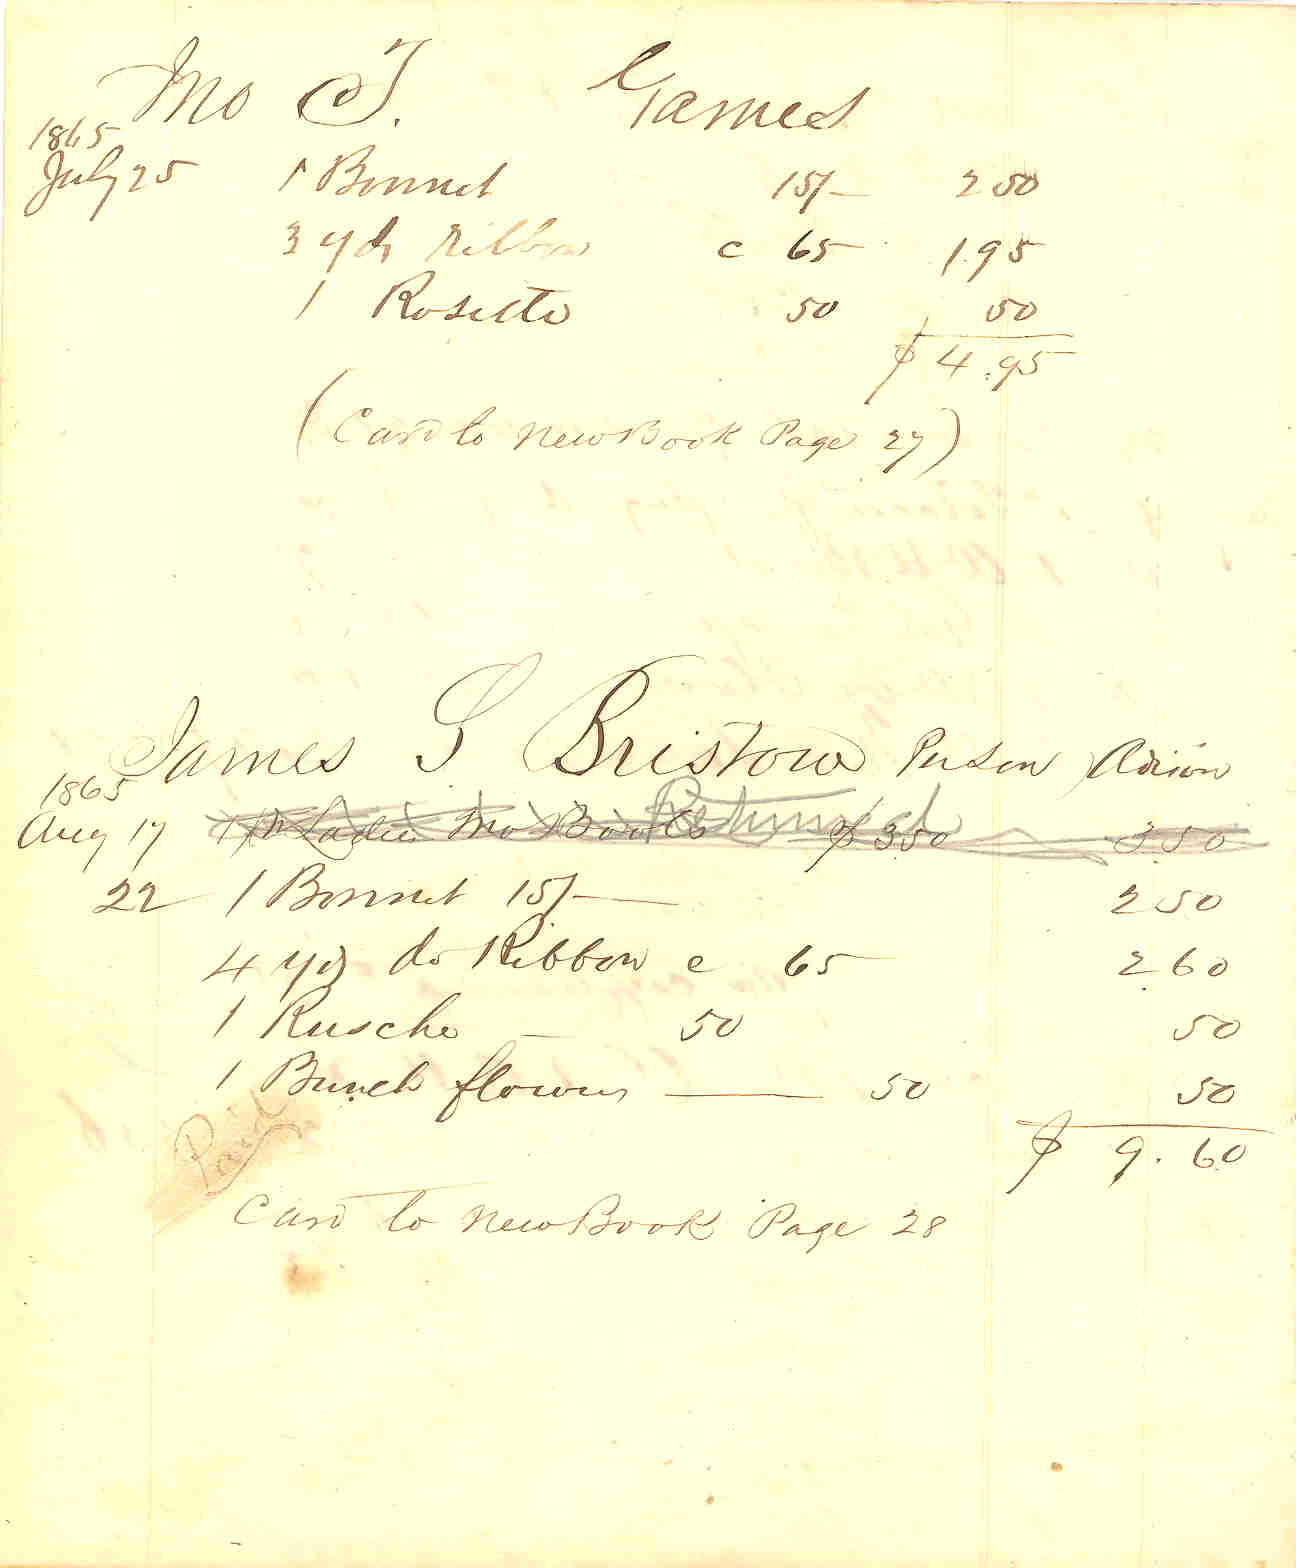 Jno T. Games
1865
July 25 1 Bonnet 15/- 2 50
3 yds Ribbon c 65 1.95
1 Rosette 50 50
$ 4.95
(Card to New Book Page 27)
James S Bristow
1865
Aug 17 1 Pr Ladies Mo Boots $3 50 3 50
Returned
22 1 Bonnet 15/- 2 50
4 yds do Ribbon c 65 2 60
1 Rusche 50 50
1 Bunch flowers 50 50
$ 9.60
Paid
Card to New Book Page 28